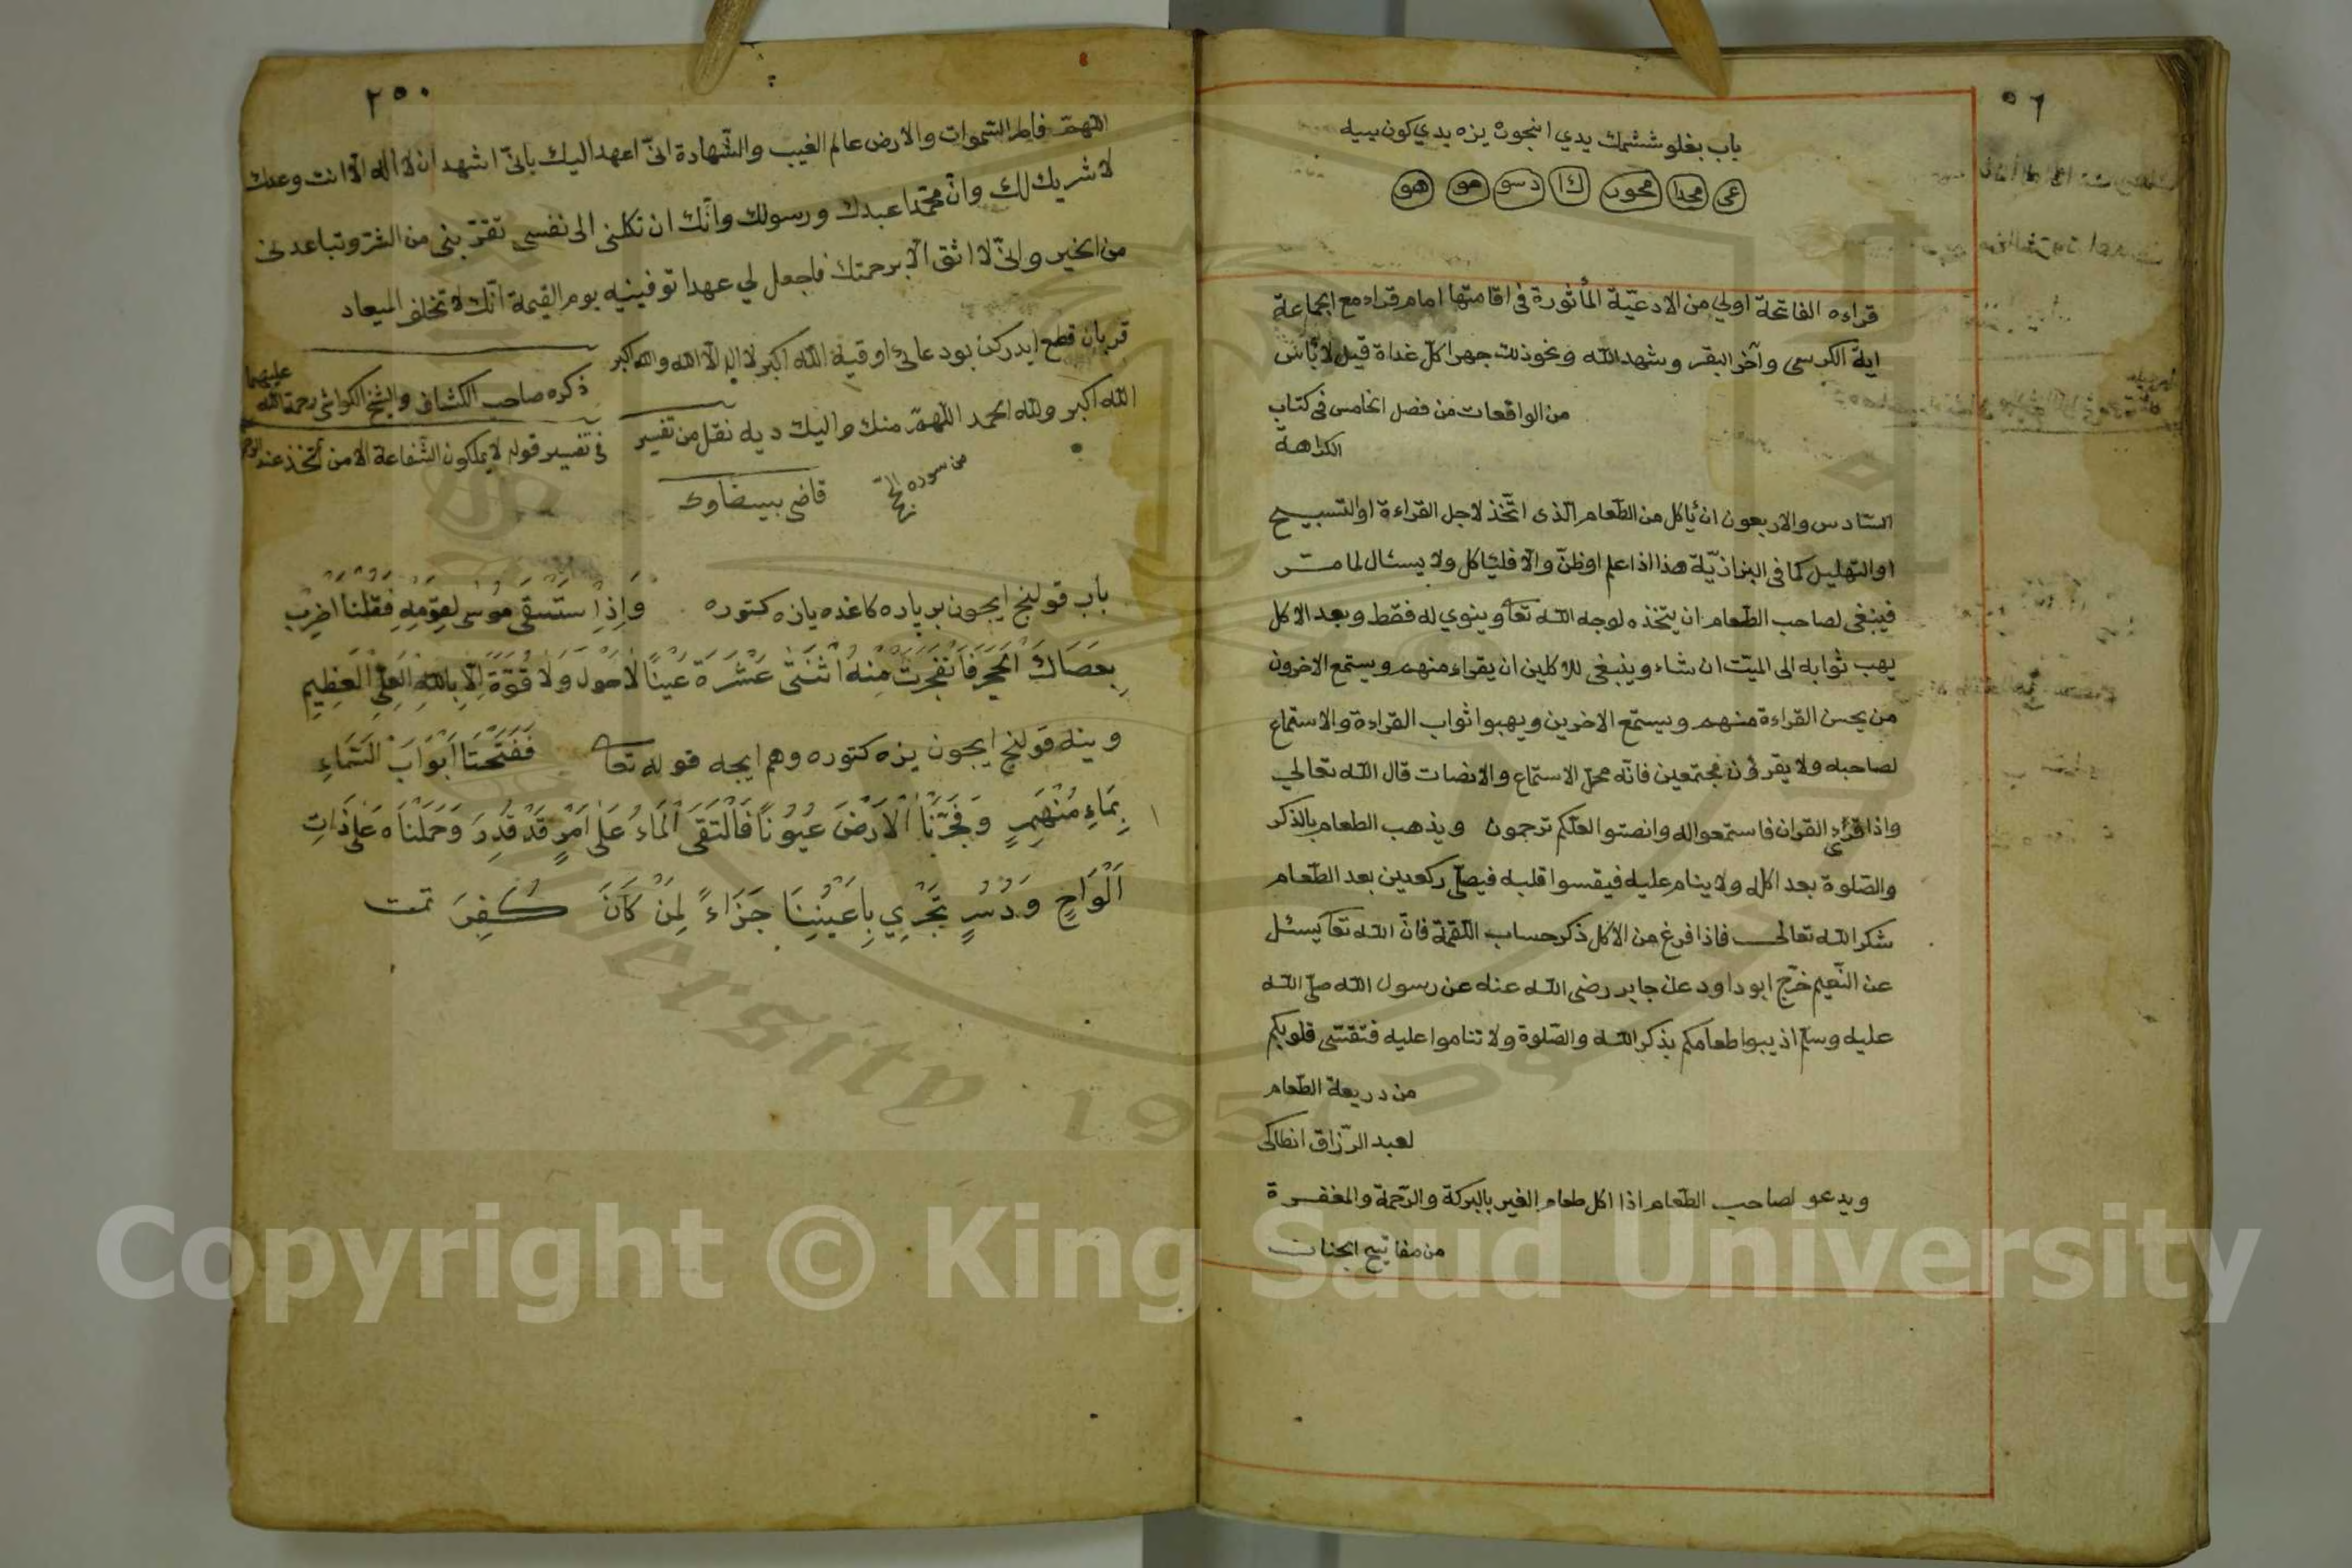 ٥٦
باب بغلو ششمك يدي انجون يزه يدي كون ييه
عى محدا محود كا دسو هو هو
قراءه الفاتحة اولي من الادعيّة المأثورة فى اقامتها امام قراءه مع الجماعة
اية الكرسى وآخر البقر وشهد الله ونحو ذلك جهرا كلّ غداة قيل لا بأس
من الواقعات من فصل الخامس فى كتاب
الكراهة
السّادس والاربعون ان يأكل من الطّعام الّذى اتّخذ لاجل القراءة او التسبيح
او التهليل كما فى البزازيّة هذا اذا علم او ظنّ والّا فليأكل ولا يسئال لما مرّ
فينبغى لصاحب الطّعام ان يتخذه لوجه الله تعا وينوي له فقط وبعد الاكل
يهب ثوابه الى الميّت ان شاء وينبغى للاكلين ان يقراء منهم ويستمع الاخرون
من يحسن القراءة منهم ويستمع الاخرين ويهبوا ثواب القراءة والاستماع
لصاحبه ولا يقرؤن مجتمعين فانّه محلّ الاستماع والانصات قال الله تعالي
واذا قرئ القران فاستمعوا له وانصتوا لعلّكم ترحمون ويذهب الطعام بالذكر
والصّلوة بعد اكله ولا ينام عليه فيقسوا قلبه فيصلّى ركعين بعد الطّعام
شكرا لله تعالى فاذا فرغ من الاكل ذكر حساب اللّقمة فانّ الله تعا يسئل
عن النّعيم خرّج ابو داود عن جابر رضى الله عنه عن رسول الله صلّى الله
عليه وسلّم اذيبوا طعامكم بذكر الله والصّلوة ولا تناموا عليه فتقسّى قلوبكم
من دريعة الطّعام
لعبد الرّزاق انطاكى
ويدعو لصاحب الطّعام اذا اكل طعام الغير بالبركة والرّحمة والمغفرة
من مفاتيح الجنات
٢٥٠
اللّهمّ فاطر السّموات والارض عالم الغيب والشّهادة انّى اعهد اليك بانّى اشهد ان لا اله الّا انت وحدك
لا شريك لك وانّ محمّدا عبدك ورسولك وانّك ان تكلنى الى نفسى تقرّبنى من الشرّ وتباعدنى
من الخير وانّى لا اثق الّا برحمتك فاجعل لي عهدا توفينيه يوم القيمة انّك لا تخلف الميعاد
ذكره صاحب الكشاف والشيخ الكواشى رحمة الله عليهما
فى تفسير قوله لا يملكون الشّفاعة الا من اتّخذ عند الرحمن
قربان قطع ايدركن بو دعائ اوقيه الله اكبر لا اله الّا الله والله اكبر
الله اكبر ولله الحمد اللّهمّ منك واليك ديه نقل من تفسير
قاضى بيضاوى
من سوره الحجّ
باب قولنج ايجون بر پاره كاغده يازه كتوره وَاِذِ اسْتَسْقَى مُوسى لِقَوْمِهِ فَقُلْنَا اضْرِبْ
بِعَصَاكَ الْحَجَرَ فَانْفَجَرَتْ مِنْهُ اثْنَتَى عَشْرَةَ عَيْنًا لَاحَوْلَ وَلَا قُوَّةَ اِلَّا بِاللهِ الْعَلِيِّ الْعَظِيمِ
وينه قولنج ايجون يزه كتوره وهم ايچه قوله تعا فَفَتَحْنَا اَبْوَابَ السَّمَاءِ
بِمَاءٍ مُنْهَمِرٍ وَفَجَّرْنَا الْاَرْضَ عُيُونًا فَالْتَقَى الْمَاءُ عَلَى اَمْرٍ قَدْ قُدِرَ وَحَمَلْنَاهُ عَلَى ذَاتِ
اَلْوَاحٍ وَدُسُرٍ تَجْرِي بِاَعْيُنِنَا جَزَاءً لِمَنْ كَانَ كُفِرَ تمت
Copyright © King Saud University